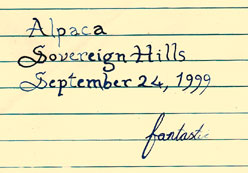 Alpaca
Sovereign Hills
September 24, 1999
fantastic